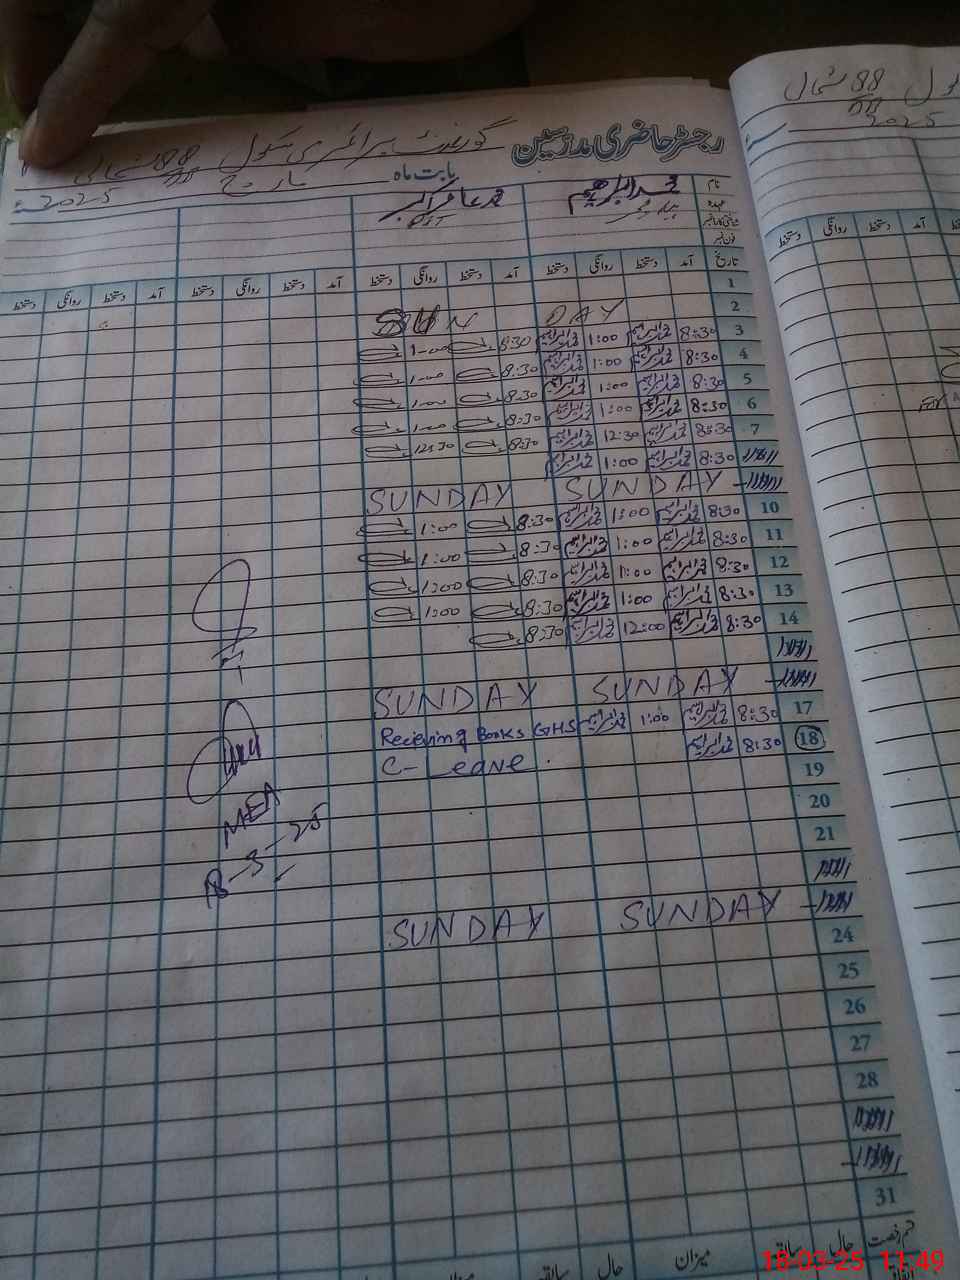 رجسٹر حاضری مدرسین گورنمنٹ پرائمری سکول 88 شمالی
بابت ماہ مارچ 2025
نام محمد ابراہیم محمد عامر اکبر
عہدہ
PST
فون نمبر
تاریخ آمد دستخط روانگی دستخط آمد دستخط روانگی دستخط آمد دستخط روانگی دستخط آمد دستخط روانگی دستخط
1
2 SUN DAY
3 8:30 محمد ابراہیم 1:00 محمد ابراہیم 8:30 1:00
4 8:30 محمد ابراہیم 1:00 محمد ابراہیم 8:30 1:00
5 8:30 محمد ابراہیم 1:00 محمد ابراہیم 8:30 1:00
6 8:30 محمد ابراہیم 1:00 محمد ابراہیم 8:30 1:00
7 8:30 محمد ابراہیم 12:30 محمد ابراہیم 8:30 12:30
8:30 محمد ابراہیم 1:00 محمد ابراہیم
SUNDAY SUNDAY
10 8:30 محمد ابراہیم 1:00 محمد ابراہیم 8:30 1:00
11 8:30 محمد ابراہیم 1:00 محمد ابراہیم 8:30 1:00
12 8:30 محمد ابراہیم 1:00 محمد ابراہیم 8:30 1:00
13 8:30 محمد ابراہیم 1:00 محمد ابراہیم 8:30 1:00
14 8:30 محمد ابراہیم 12:00 محمد ابراہیم 8:30
SUNDAY SUNDAY
17 8:30 محمد ابراہیم 1:00 محمد ابراہیم Recieving Books GHS
18 8:30 محمد ابراہیم C-Leave
19
20
21
SUNDAY SUNDAY
24
25
26
27
28
31
MEA
18-3-25
قسم رخصت حالیہ سابقہ میزان حال سابقہ
88 شمالی
2025
آمد دستخط روانگی دستخط
18-03-25 11:49